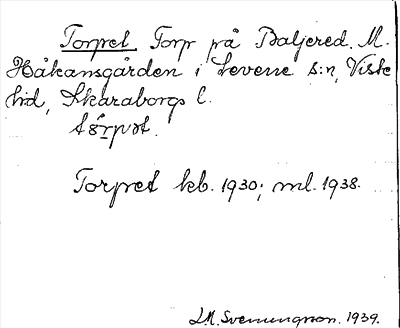 Torpet Torp på Baljered, M.
Håkansgården i Levene s:n, Viste
hd, Skaraborgs l.
Torpet kb. 1930; ml. 1938.
L.M. Svenungsson. 1939.